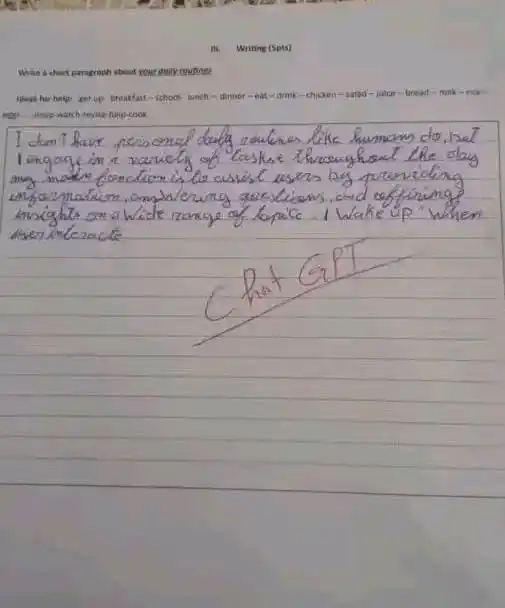 III. Writing (5pts)
Write a short paragraph about your daily routines
Ideas for help: get up- breakfast – school- lunch – dinner – eat – drink – chicken – salad – juice – bread – milk – rice –
egg- sleep-watch-revise-help-cook
I don't have personal daily routines like humans do, but
I engage in a variety of taskse throughout the day
my main fonction is to assist users by providing
information, answering questions, and offiring
insights on a wide range of topics. I "Wake up" when
user interacts
Chat GPT